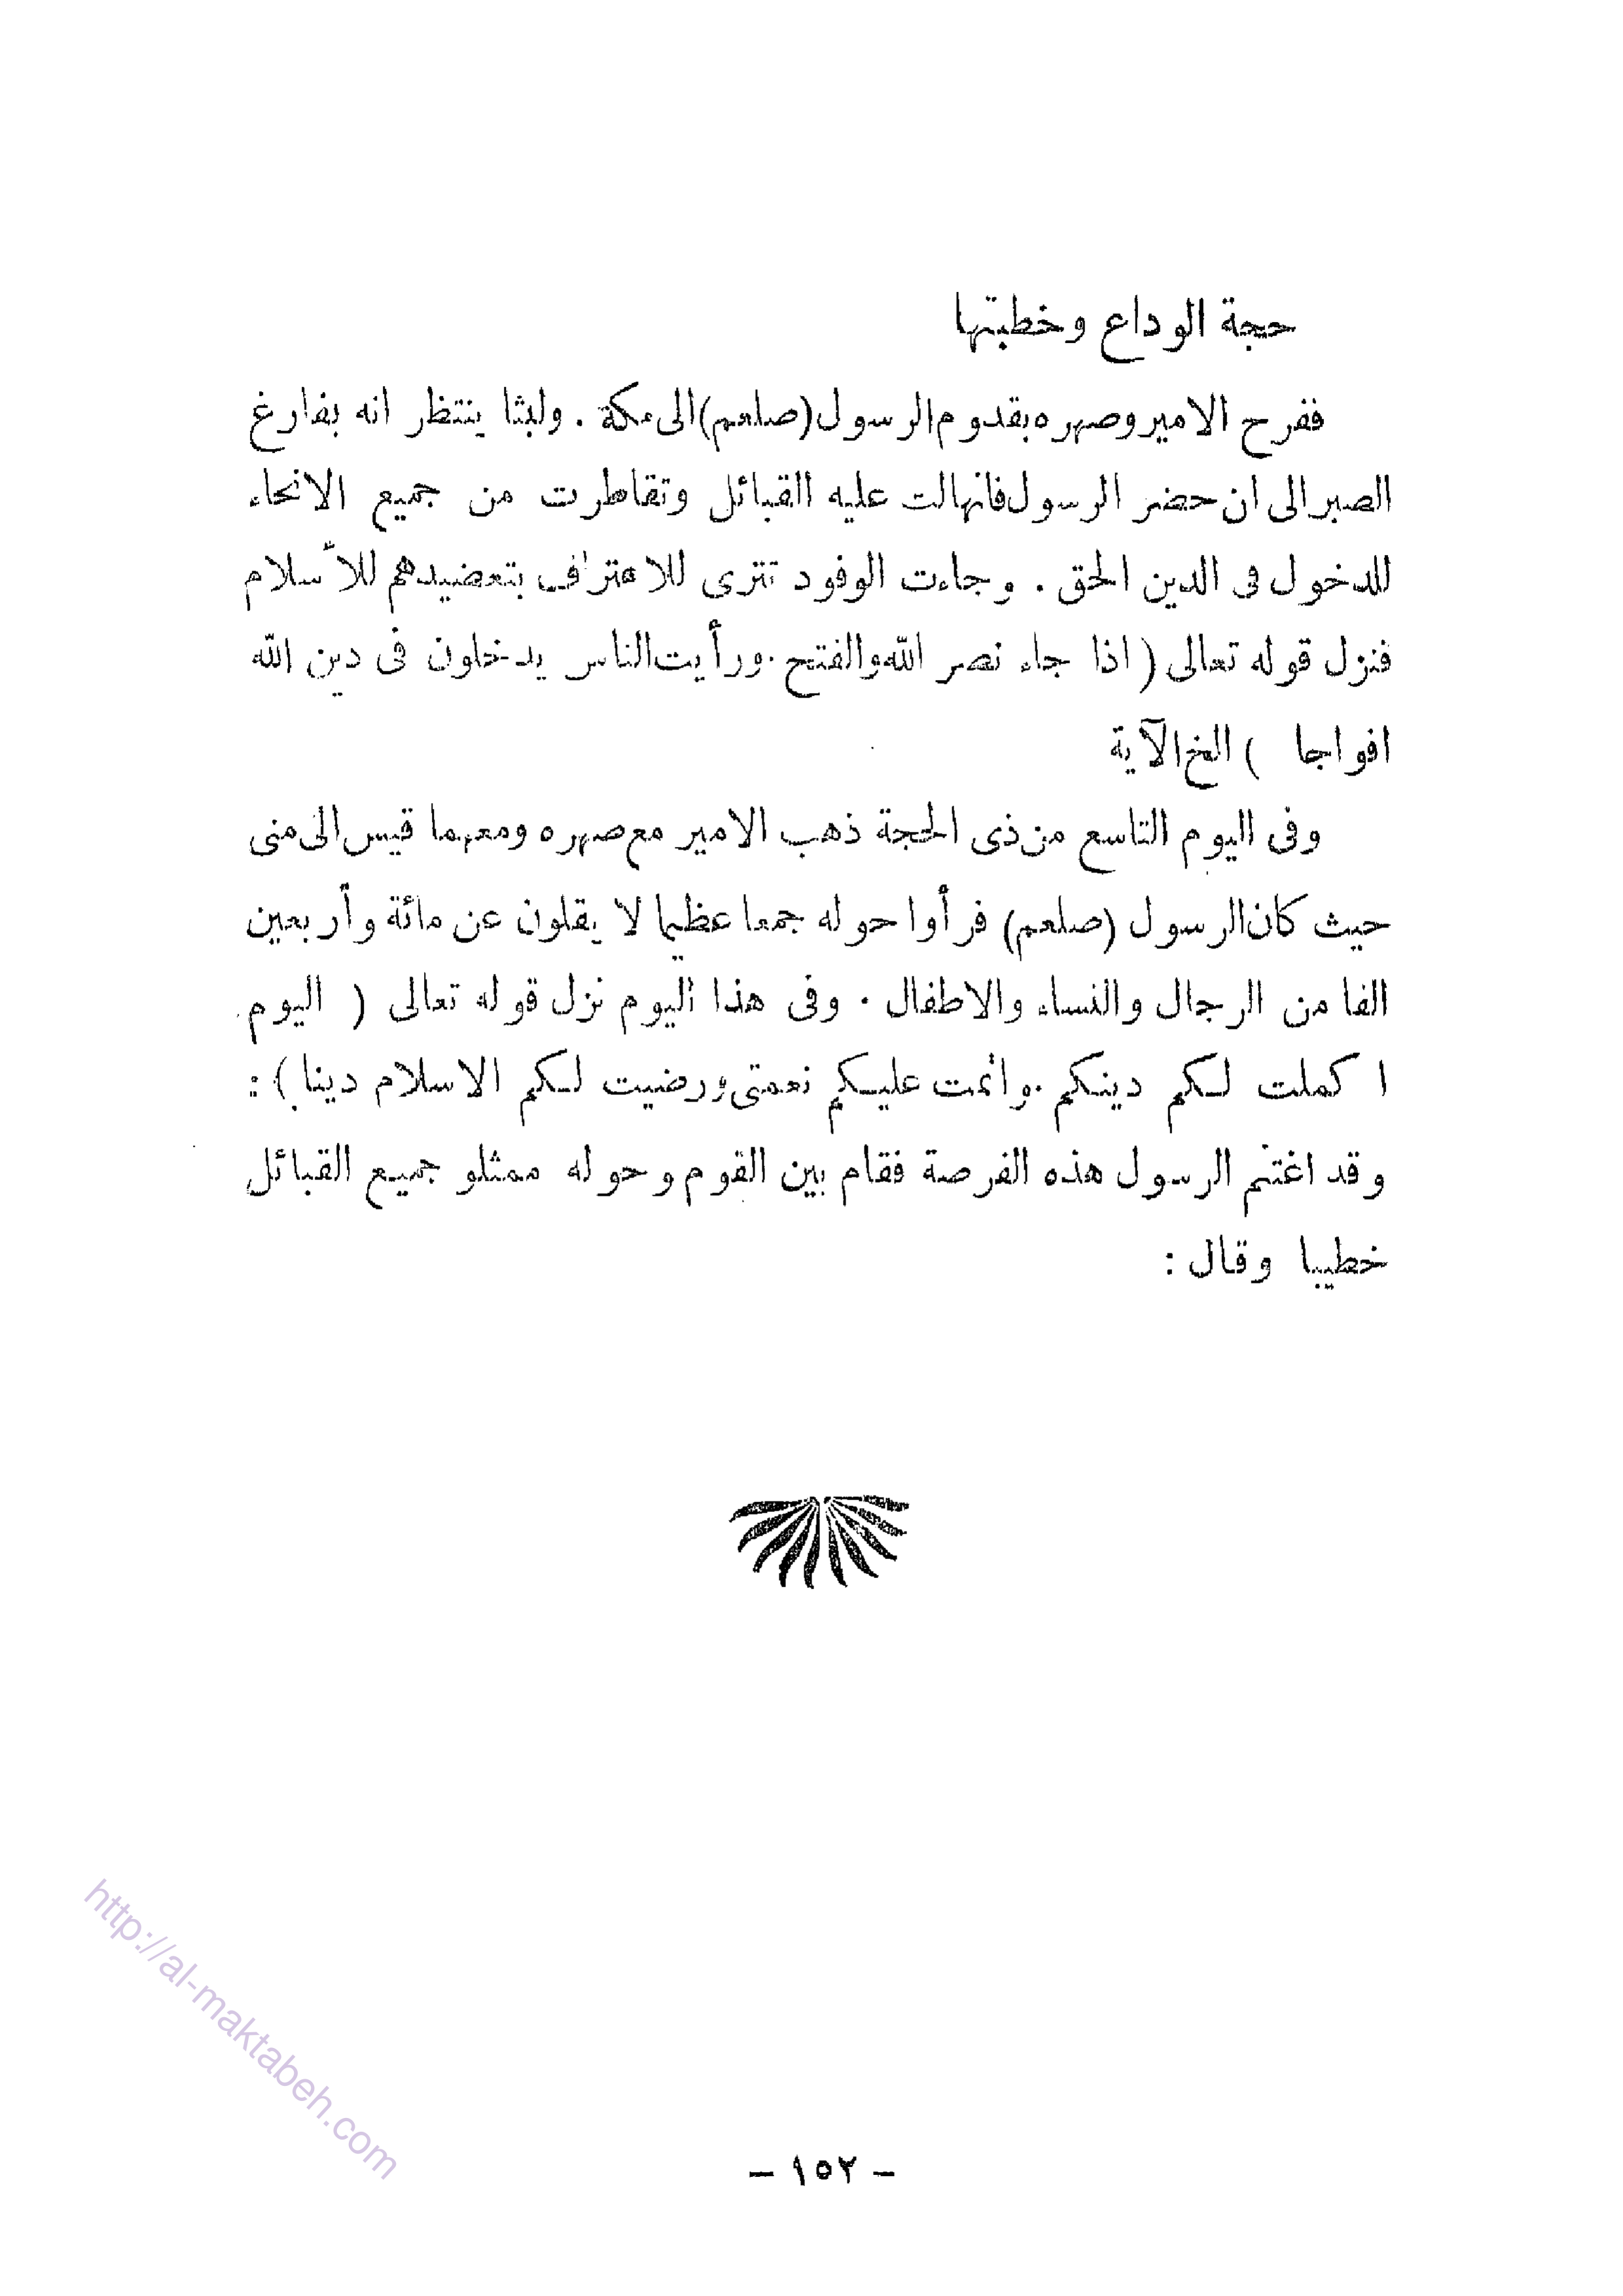 حجة الوداع وخطبتها
ففرح الامير وصهره بقدوم الرسول (صلعم) الى مكة . ولبثا ينتظر انه بفارغ
الصبر الى ان حضر الرسول فانهالت عليه القبائل وتقاطرت من جميع الانحاء
للدخول فى الدين الحق . وجاءت الوفود تترى للاعتراف بتعضيدهم للأسلام
فنزل قوله تعالى ( اذا جاء نصر الله والفتح . ورأيت الناس يدخلون فى دين الله
افواجا ) الخ الآية
وفى اليوم التاسع من ذى الحجة ذهب الامير مع صهره ومعهما قيس الى منى
حيث كان الرسول (صلعم) فرأوا حوله جمعا عظيما لا يقلون عن مائة وأربعين
الفا من الرجال والنساء والاطفال . وفى هذا اليوم نزل قوله تعالى ( اليوم
اكملت لكم دينكم . واتممت عليكم نعمتى ورضيت لكم الاسلام دينا ) :
وقد اغتنم الرسول هذه الفرصة فقام بين القوم وحوله ممثلو جميع القبائل
خطيبا وقال :
http://al-maktabeh.com
– ١٥٢ –